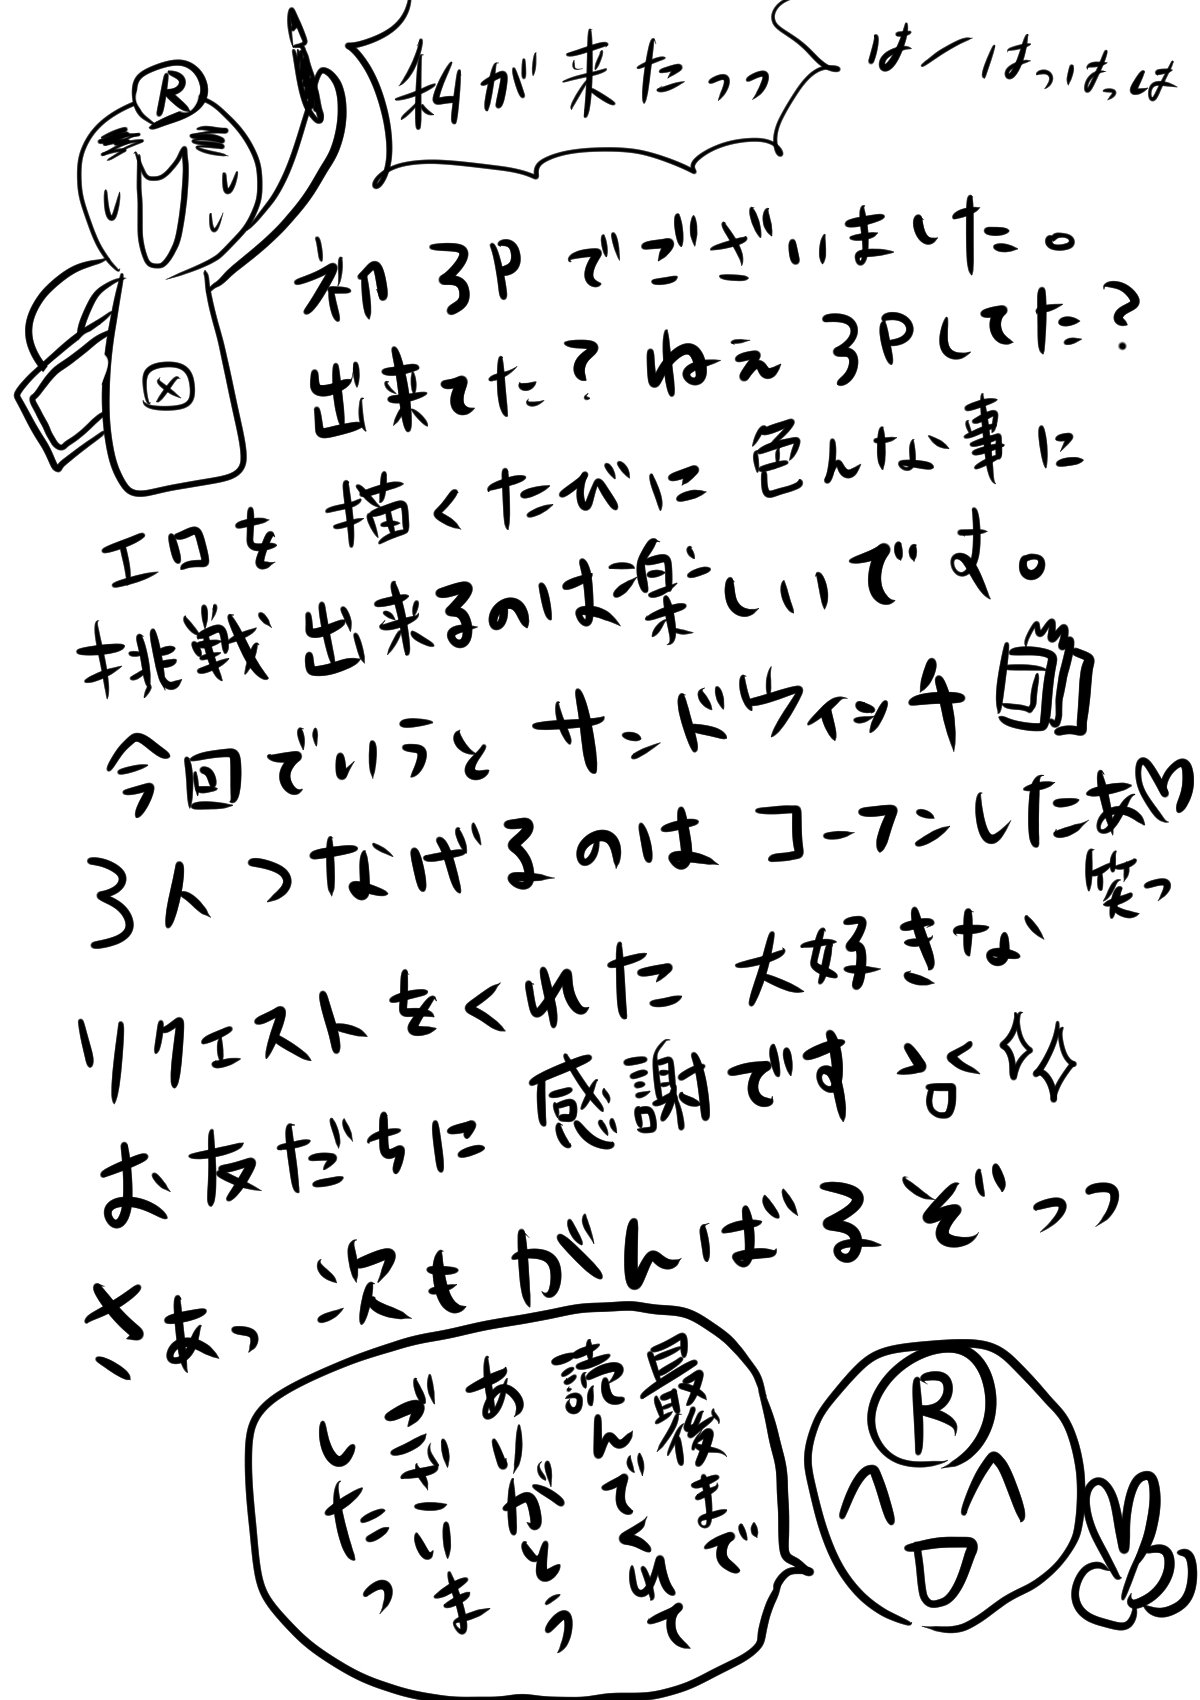 R
私が来たっっ
はーはっはっは
初3Pでございました。
出来てた?ねぇ3Pしてた?
エロを描くたびに色んな事に
挑戦出来るのは楽しいです。
今回でいうとサンドウィッチ
3人つなげるのはコーフンしたぁ♡
笑っ
リクエストをくれた大好きな
お友だちに感謝です
さぁっ次もがんばるぞっっ
最後まで
読んでくれて
ありがとう
ございま
したっ
R